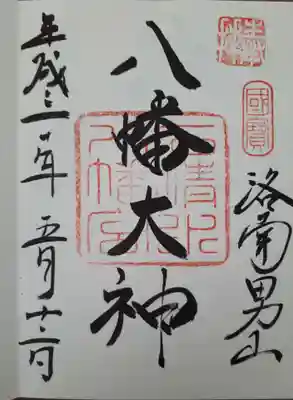 國寶
洛南男山
八幡大神
石清水八幡宮
平成三十年五月十二日